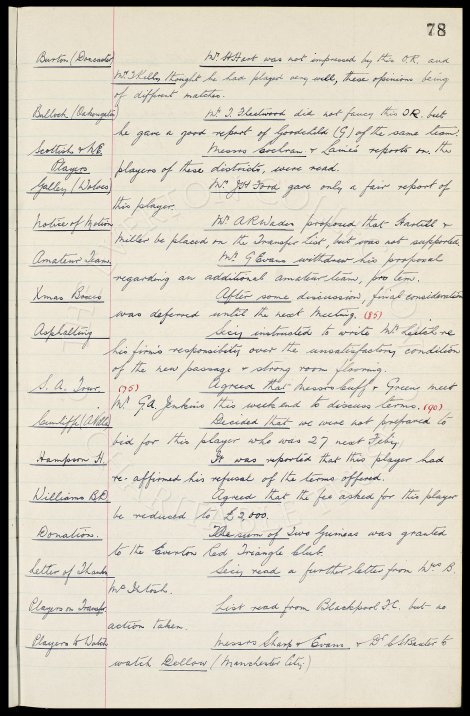 78
Burton (Doncaster) Mr. H Hart was not impressed by this O.R. and
Mr. J Kelly thought he had played very well, these opinions being
of different matches.
Bulloch (Oakengates) Mr. T. Fleetwood did not fancy this I.R. but
he gave a good report of Goodchild (G) of the same team.
Scottish & N.E. Messrs Cochran & Lamie's reports on the
Players players of these districts, were read.
Galley (Wolves) Mr. J.H. Ford gave only a fair report of
this player.
Notice of Motion Mr. A R Wadon proposed that Hartill &
Miller be placed on the Transfer List, but was not supported.
Amateur Team Mr. G Evans withdrew his proposal
regarding an additional amateur team, pro tem.
Xmas Boxes After some discussion, final consideration
was deferred until the next meeting. (85)
Asphalting Secy instructed to write Mr. Leitch re
his firm's responsibility over the unsatisfactory condition
of the new passage & strong room flooring.
S. A. Tour. (75) Agreed that Messrs Cuff & Green meet
Mr. GA Jenkins this week end to discuss terms. (90)
Cunliffe (A) Decided that we were not prepared to
bid for this player who was 27 next Feby.
Hampson H. It was reported that this player had
re-affirmed his refusal of the terms offered.
Williams B.D. Agreed that the fee asked for this player
be reduced to £2,000.
Donation. The sum of Two Guineas was granted
to the Everton Red Triangle Club.
Letter of Thanks Secy read a further letter from Mrs B.
McIntosh.
Players on Transfer. List read from Blackpool F.C. but no
action taken.
Players to Watch Messrs Sharp & Evans, & Dr. C S Baxter to
watch Dellow (Manchester City.)